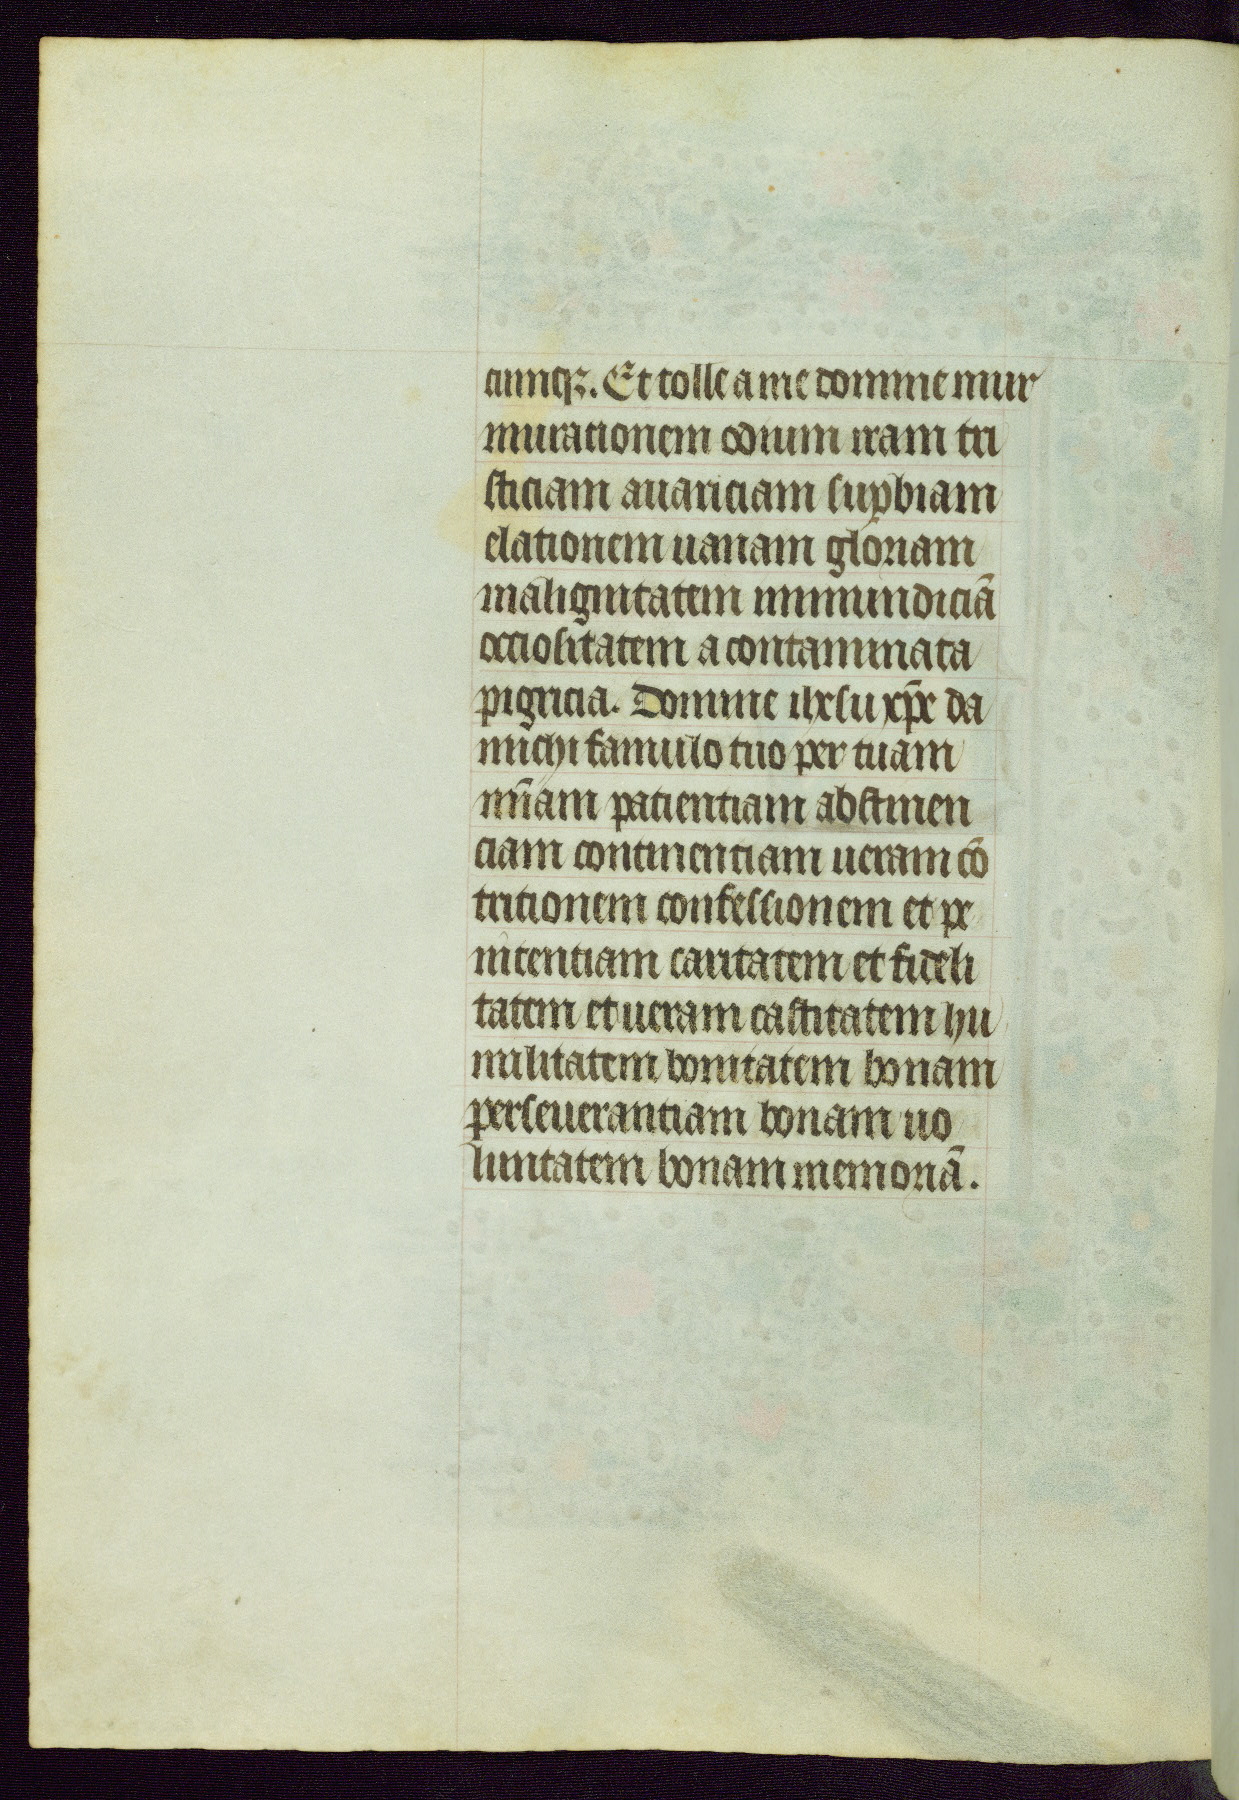 cunctis. Et tolle a me domine mur
murationem odium iram tri
sticiam auariciam sup̱biam
elationem uanam gloriam
malignitatem inmundiciā
occiositatem a contaminata
pigricia. Domine ihesu xp̄e da
michi famulo tuo per tuam
mīam patientiam abstinen
ciam continentiam ueram cō
tritionem confessionem et pe
nitentiam caritatem et fideli
tatem et ueram castitatem hu
militatem bonitatem bonam
perseuerantiam bonam uo
luntatem bonam memoriā.